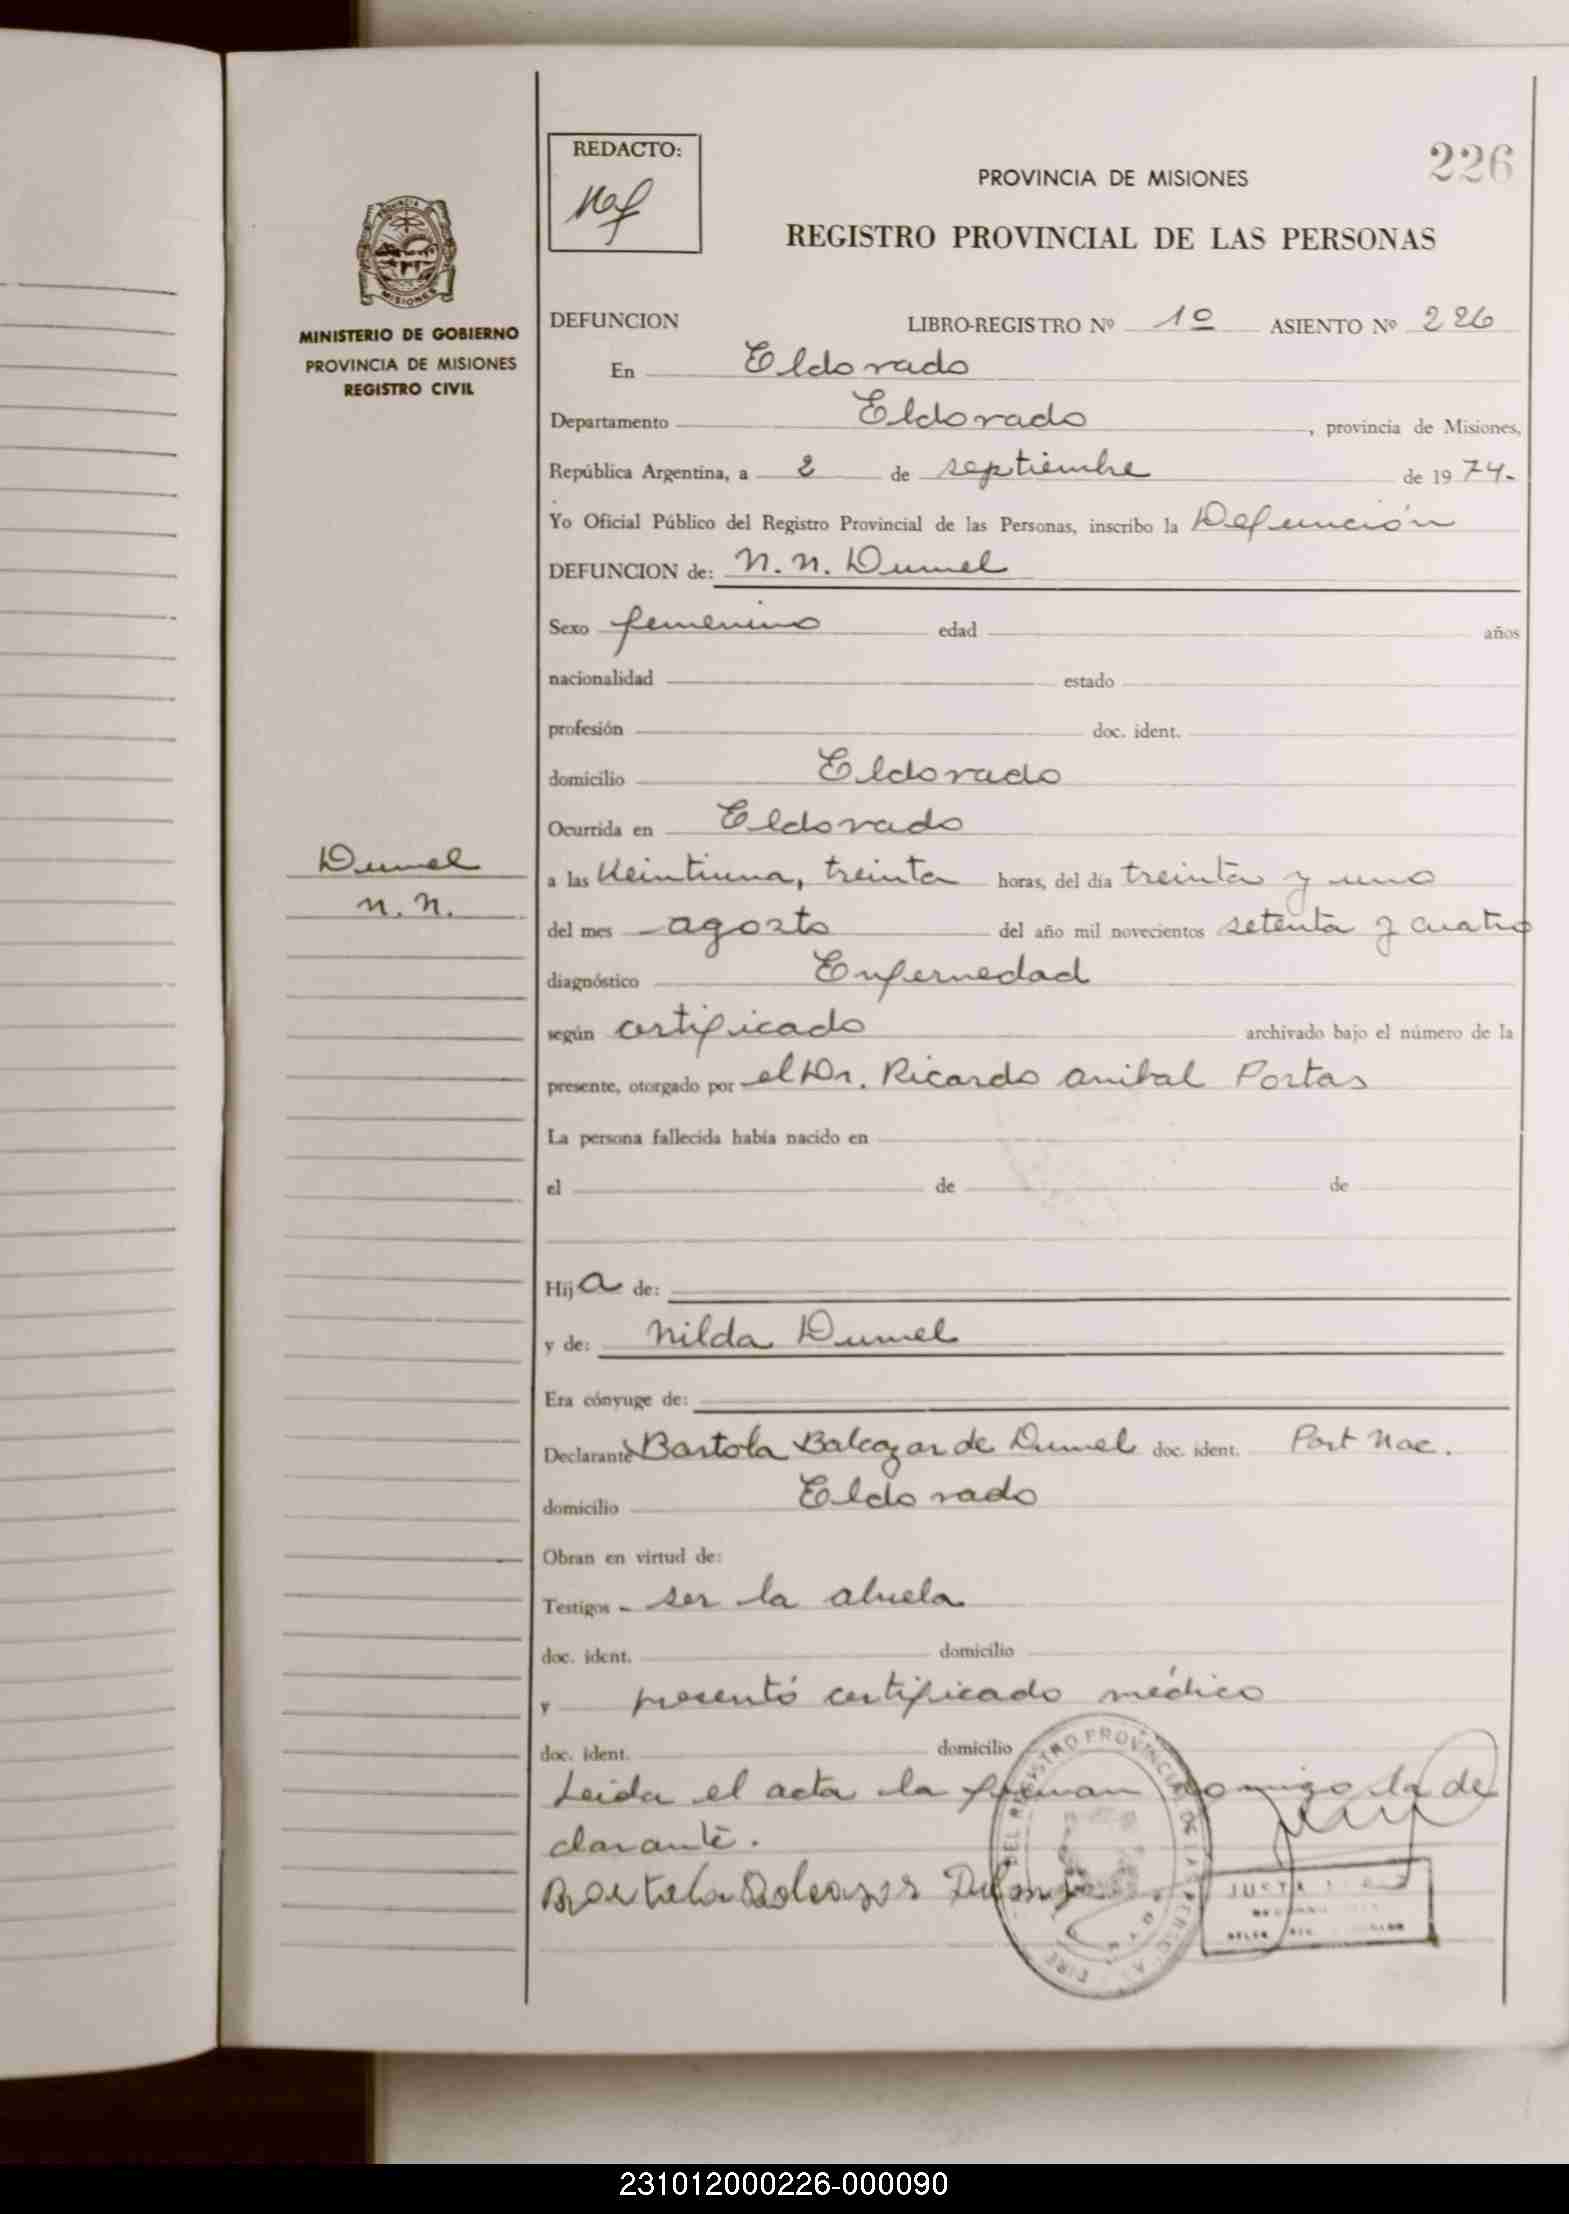 REDACTO:
226
PROVINCIA DE MISIONES
REGISTRO PROVINCIAL DE LAS PERSONAS
MINISTERIO DE GOBIERNO
PROVINCIA DE MISIONES
REGISTRO CIVIL
DEFUNCION LIBRO-REGISTRO Nº 1º ASIENTO Nº 226
En Eldorado
Departamento Eldorado, provincia de Misiones,
República Argentina, a 2 de septiembre de 1974.-
Yo Oficial Público del Registro Provincial de las Personas, inscribo la Defunción
DEFUNCION de: N.N. Dumel
Sexo femenino edad años
nacionalidad estado
profesión doc. ident.
domicilio Eldorado
Ocurrida en Eldorado
Dumel
N.N.
a las Veintiuna, treinta horas, del día treinta y uno
del mes agosto del año mil novecientos setenta y cuatro
diagnóstico Enfermedad
según certificado archivado bajo el número de la
presente, otorgado por el Dr. Ricardo Anibal Portas
La persona fallecida había nacido en
el de de
Hija de:
y de: Nilda Dumel
Era cónyuge de:
Declarante Bartola Balcazar de Dumel doc. ident. Part Nac.
domicilio Eldorado
Obran en virtud de:
Testigos - ser la abuela
doc. ident. domicilio
y presentó certificado médico
doc. ident. domicilio
Leida el acta la firman conmigo la de
clarante.
Bartola Balcazar
DEL REGISTRO PROVINCIAL DE LAS PERSONAS
231012000226-000090